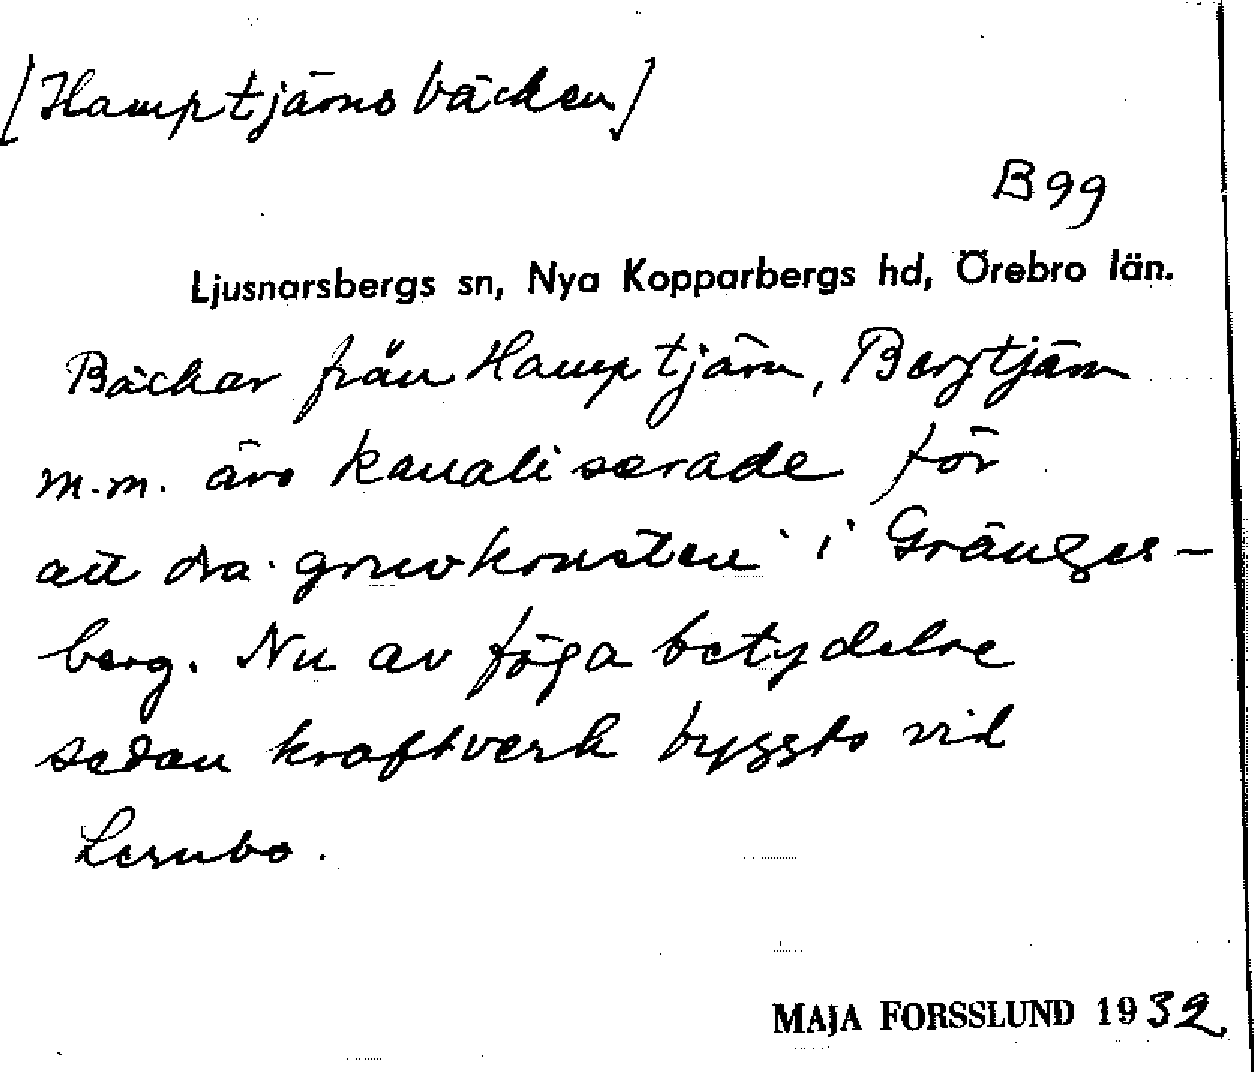 [Hamptjärnsbäcken]
B 99
Ljusnarsbergs sn, Nya Kopparbergs hd, Örebro län.
Bäckar från Hamptjärn, Bergtjärn
m.m. äro kanaliserade för
att dra gruvkonsten i Gränges-
berg. Nu av föga betydelse
sedan kraftverk byggts vid
Lernbo.
MAJA FORSSLUND 1932